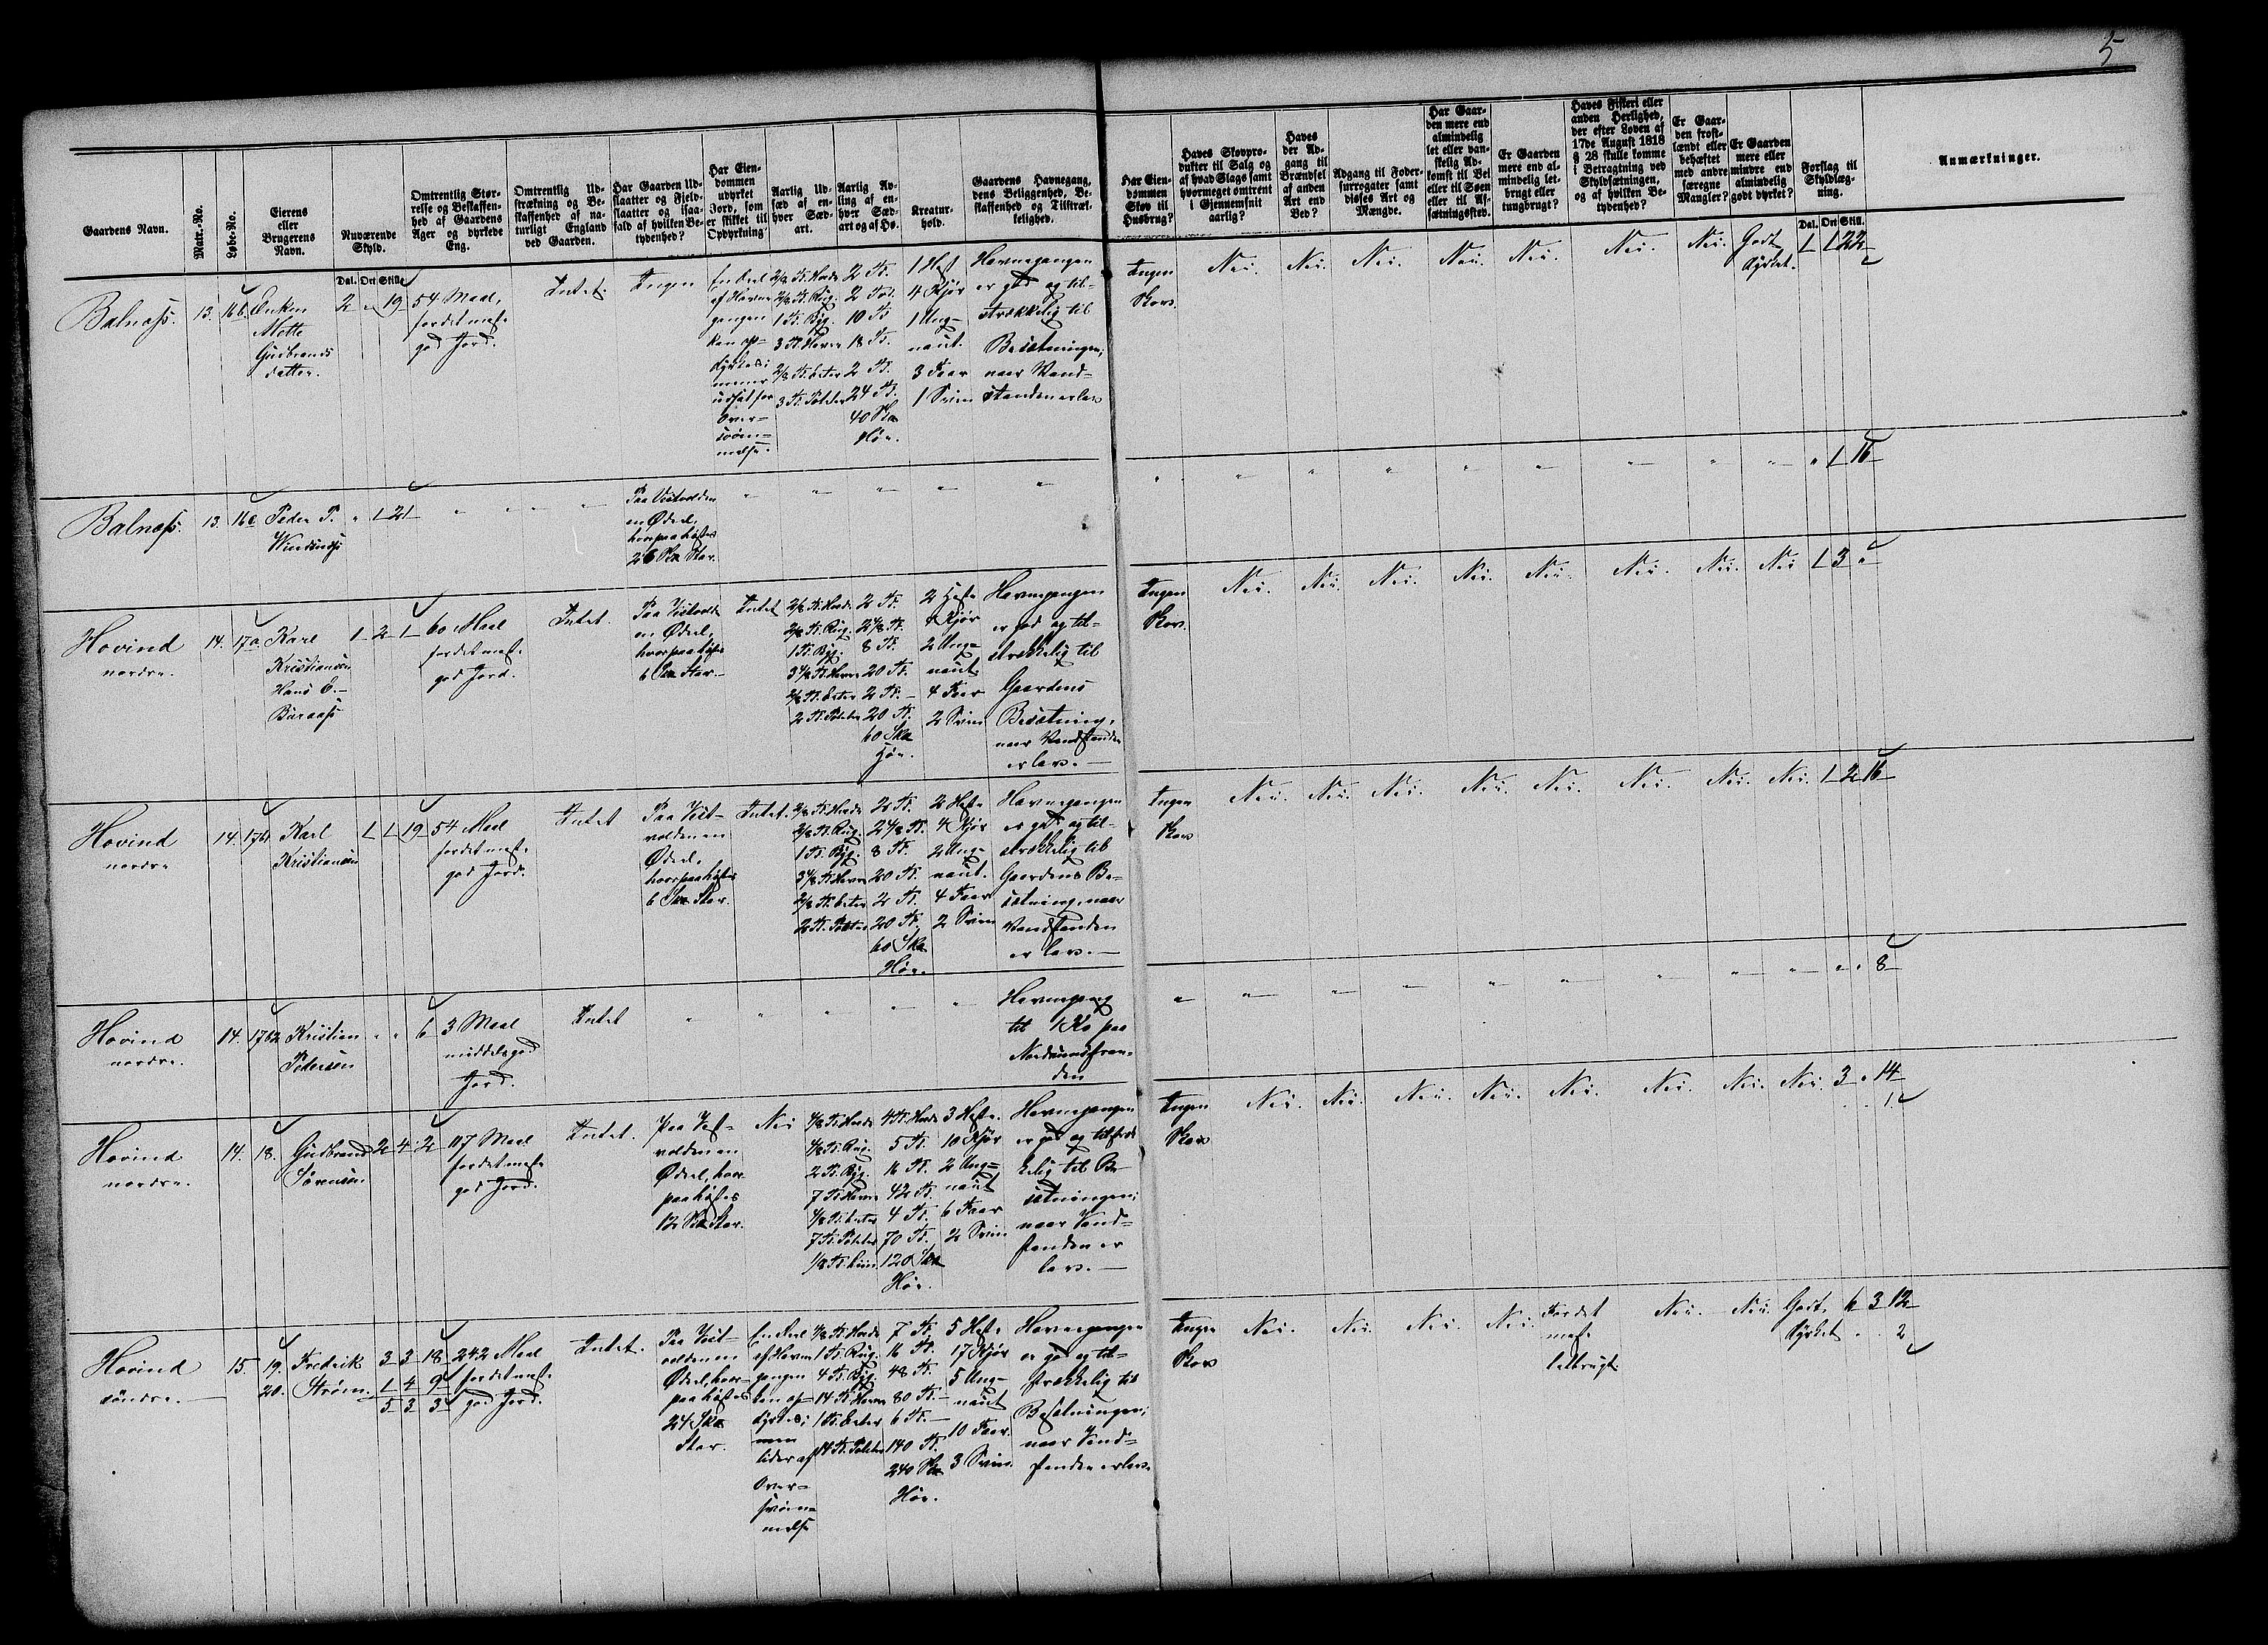 5
Gaardens Navn.
Matr.-No.
Løbe-No.
Eierens
eller
Brugerens
Navn.
Nuværende
Skyld.
Dal. Ort Skill.
Omtrentlig Stør-
relse og Beskaffen-
hed af Gaardens
Ager og dyrkede
Eng.
Omtrentlig Ud-
strækning og Be-
skaffenhed af na-
turligt England
ved Gaarden.
Har Gaarden Ud-
slaatter og Fjeld-
slaatter og isaa-
fald af hvilken Be-
tydenhed?
Har Eien-
dommen
udyrket
Jord, som
er skikket til
Opdyrkning
Aarlig Ud-
sæd af en-
hver Sæd-
art.
Aarlig Av-
ling af en-
hver Sæd-
art og af Hø.
Kreatur-
hold.
Gaardens Havnegang,
dens Beliggenhed, Be-
skaffenhed og Tilstræk-
kelighed.
Har Eien-
dommen
Skov til
Husbrug?
Haves Skovpro-
dukter til Salg og
af hvad Slags samt
hvormeget omtrent
i Gjennemsnit
aarlig?
Haves
der Ad-
gang til
Brændsel
af anden
Art end
Ved?
Adgang til Foder-
surrogater samt
disses Art og
Mængde.
Har Gaar-
den mere end
almindelig
let eller van-
skelig Ad-
komst til Vei
eller til Søen
eller til Af-
sætningssted.
Er Gaarden
mere end al-
mindelig let-
brugt eller
tungbrugt?
Haves Fiskeri eller
anden Herlighed,
der efter Loven af
17de August 1818
§ 28 skulle komme
i Betragtning ved
Skyldsætningen,
og af hvilken Be-
tydenhed?
Er Gaar-
den frost-
lændt eller
behæftet
med andre
særegne
Mangler?
Er Gaarden
mere eller
mindre end
almindelig
godt dyrket?
Forslag til
Skyldlæg-
ning.
Dal. Ort Skill.
Anmærkninger.
Balnæss. 13. 16b. Enken
Mette
Gudbrands
datter.
2 " 19
54 Maal,
fordetmeste
god Jord.
Intet.
Ingen
En Deel
af Havne
gangen
kan op-
dyrkes;
men er
udsat for
Over-
svøm-
melse.
2/8 Tø. Hvede
2/8 Tø. Rug.
1 Tø. Byg.
3 Tø. Havre
2/8 Tø. Erter
3 Tø. Poteter
2 Tø.
2 Tø.
10 Tø
18 Tø.
2 Tø.
24 Tø.
40 Skp
Høe.
1 Hest
4 Kjør
1 Ung-
naut.
3 Faar
1 Sviin
Havnegangen
er god og til-
strækkelig til
Besætningen,
naar Vand-
standen er lav
Ingen
Skov.
Nei. Nei. Nei. Nei. Nei. Nei. Nei. Godt
dyrket. 1 1 22
Balnæss. 13. 16c Peder P.
" 1 21
Paa Vestvolden
en Ødeel,
hvorpaa høstes
26 Skp Star.
" 1 16
Hovind
nordre.
14. 17a. Karl
Kristiansen
Hans E.
1 2 1
60 Maal
fordetmeste
god Jord.
Intet.
Paa Vestvolden
en Ødeel,
hvorpaa høstes
6 Skp Star.
Intet
2/8 Tø. Hvede
2/8 Tø. Rug.
1 Tø. Byg.
3 4/8 Tø. Havre
2/8 Tø. Erter
2 Tø. Poteter
2 Tø.
2 4/8 Tø.
8 Tø.
20 Tø.
2 Tø.
20 Tø.
60 Skp
Høe.
2 Heste
4 Kjør
2 Ung-
naut
4 Faar
2 Sviin
Havnegangen
er god og til-
strækkelig til
Gaardens
Besætning,
naar Vandstanden
er lav.
Ingen
Skov.
Nei. Nei. Nei. Nei. Nei. Nei. Nei. Nei 1 3 "
Hovind
nordre
14. 17b1 Karl
Kristiansen
1 1 19
54 Maal
fordetmeste
god Jord.
Intet
Paa Vest-
volden en
Ødeel,
hvorpaa høstes
6 Skp Star.
Intet.
2/8 Tø. Hvede
2/8 Tø. Rug.
1 Tø. Byg.
3 4/8 Tø. Havre
2/8 Tø. Erter
2 Tø. Poteter
2 Tø.
2 4/8 Tø.
8 Tø.
20 Tø.
2 Tø.
20 Tø.
60 Skp
Høe.
2 Heste
4 Kjør
2 Ung-
naut.
4 Faar
2 Sviin
Havnegangen
er god og til-
strækkelig til
Gaardens Be-
sætning, naar
Vandstanden
er lav.
Ingen
Skov
Nei. Nei. Nei. Nei. Nei. Nei. Nei. Nei. 1 2 16
Hovind
nordre.
14. 17b2 Kristian
Pedersen
" " 6
3 Maal
middelsgod
Jord.
Intet
Havnegang
til 1 Ko paa
" " 8
Hovind
nordre.
14. 18. Gudbrand
Sørensen
2 4 2
107 Maal
fordetmeste
god Jord.
Intet.
Paa Vest-
volden en
Ødeel, hvor
paa høstes
12 Skp Star.
Nei
4/8 Tø. Hvede
4/8 Tø. Rug.
2 Tø. Byg.
7 Tø. Havre
4/8 Tø. Erter
7 Tø. Poteter
4 Tø. Hvede
5 Tø.
16 Tø.
42 Tø.
4 Tø.
70 Tø.
120 Skp
Høe.
3 Heste.
10 Kjør
2 Ung-
naut
6 Faar
2 Sviin
Havnegangen
er god og tilstræk
kelig til Be-
sætningen;
naar Vand-
standen er
lav.
Ingen
Skov
Nei. Nei. Nei. Nei. Nei. Nei. Nei. Nei. 3 " 14
" " 1
Hovind
søndre.
15. 19.
20.
Fredrik
Strøm.
3 3 18
1 4 9
5 3 3
242 Maal
fordetmeste
god Jord.
Intet.
Paa Vest-
volden en
Ødeel, hvor-
paa høstes
24 Skp
Star.
En Deel
af Havne
gangen
kan op-
dyrkes;
men
lider af
Over-
svøm-
melse
4/8 Tø. Hvede
1 Tø. Rug.
4 Tø. Byg.
14 Tø. Havre
1 Tø. Erter
14 Tø. Poteter
7 Tø.
16 Tø.
48 Tø.
80 Tø.
6 Tø.
140 Tø.
240 Skp
Høe.
5 Heste
17 Kjør
5 Ung-
naut
10 Faar.
3 Sviin.
Havnegangen
er god og til-
strækkelig til
Besætningen;
naar Vand-
standen er lav.
Ingen
Skov
Nei. Nei. Nei. Nei. Fordet
meste
letbrugt.
Nei. Nei. Godt
dyrket
6 3 12
" " 2